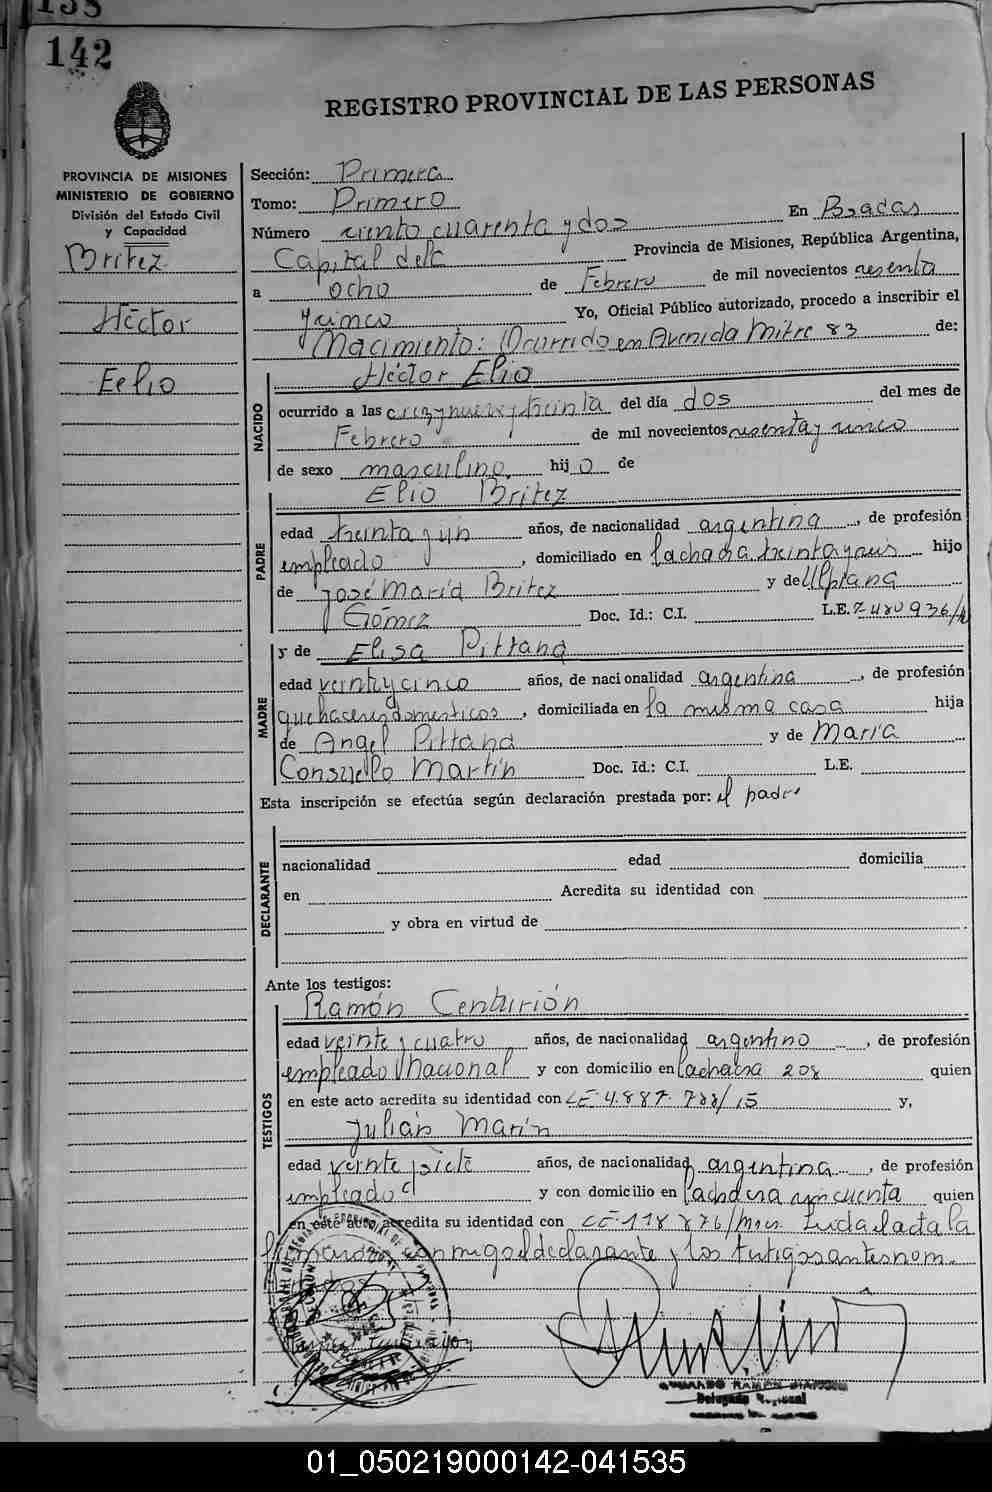 142
REGISTRO PROVINCIAL DE LAS PERSONAS
PROVINCIA DE MISIONES
MINISTERIO DE GOBIERNO
División del Estado Civil
y Capacidad
Britez
Héctor
Eelio
Sección: Primera
Tomo: Primero
Número ciento cuarenta y dos En Posadas
Capital dela Provincia de Misiones, República Argentina,
a ocho de Febrero de mil novecientos sesenta
y uinco Yo, Oficial Público autorizado, procedo a inscribir el
Nacimiento: Ocurrido en Avenida Mitre 83 de:
NACIDO
Héctor Elio
ocurrido a las diez y nueve y treinta del día dos del mes de
Febrero de mil novecientos sesenta y uinco
de sexo masculino hijo de
PADRE
Elio Britez
edad treinta y un años, de nacionalidad argentina, de profesión
empleado, domiciliado en la chacra treinta y seis hijo
de José María Britez y de Ulpiana
Gómez Doc. Id.: C.I. L.E. 7480936/
y de Elisa Pittana
MADRE
edad veinty cinco años, de nacionalidad argentina, de profesión
quehaceres domesticos, domiciliada en la misma casa hija
de Angel Pittana y de María
Consuelo Martín Doc. Id.: C.I. L.E.
Esta inscripción se efectúa según declaración prestada por: el padre
DECLARANTE
nacionalidad edad domicilia
en Acredita su identidad con
y obra en virtud de
Ante los testigos:
TESTIGOS
Ramón Centurión
edad veinte y cuatro años, de nacionalidad argentino, de profesión
empleado Nacional y con domicilio en la chacra 208 quien
en este acto acredita su identidad con LE 4.887.788/15 y,
Julián Marín
edad veinte siete años, de nacionalidad argentina, de profesión
empleado y con domicilio en la chacra cincuenta quien
en este acto acredita su identidad con CE 118876/Mnes. Leida el acta la
firmaron conmigo el declarante y los testigos antes nom.
Delegado Regional
01_050219000142-041535